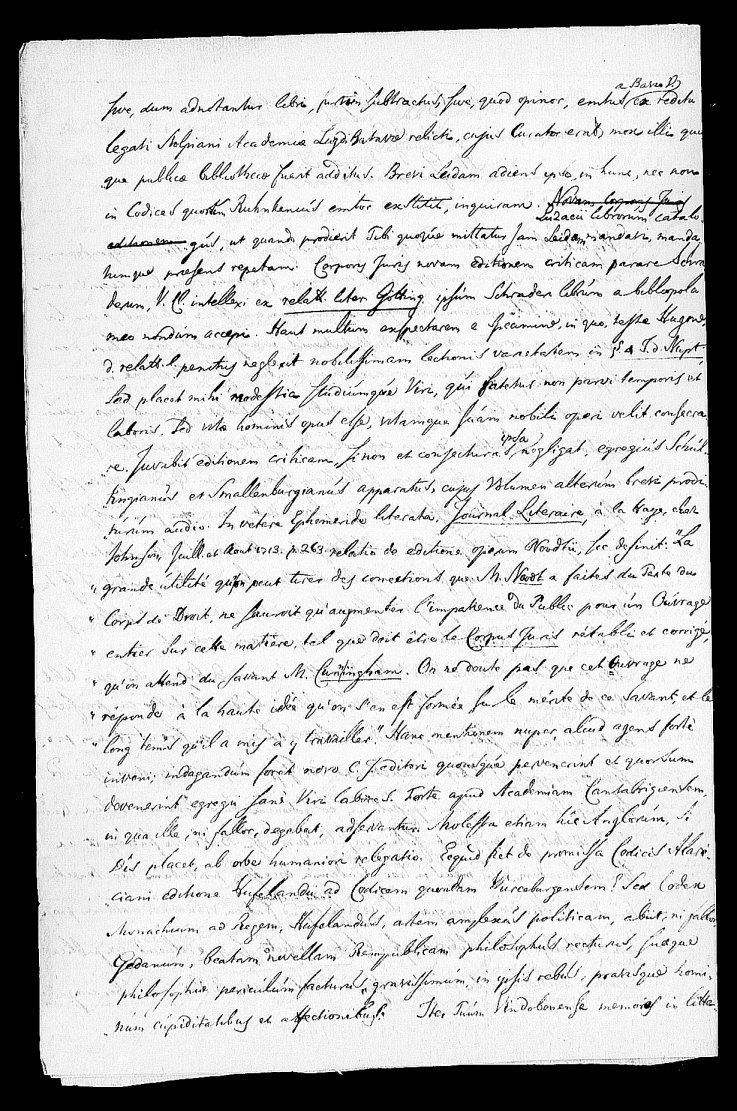 a Barzo
sive, dum adnotantur libri, furtim subtractus, sive, quod opinor, emtus ex reditu
legati Stolpiani Academiæ Lugd Batavæ relicti, cujus Curator erat, more illic quo-
que publicæ bibliothecæ fuerit additus. Brevi Leidam adiens ipse, in hunc, nec non
in Codices quorum Ruhnkenius emtor exstitit, inquiram. Novam Corporis Juris
Luzacii librorum catalo-
editionem gus, ut quando prodierit Tibi quoque mittatur jam Leidam mandavi, manda-
tumque præsens repetam. Corporis Juris novam editionem criticam parare Schra-
derum, V. Cl. intellexi ex relatt. liter. Gotting. ipsum Schraderi librum a bibliopola
meo nondum accepi. Haut multum exspectarem e specimine, in quo, teste Hugone,
d. relatt. l. penitus neglexit nobilissimam lectionis varietatem in § 4 I. d. Nupt.
Sed placet mihi modestia studiumque Viri, qui fatetur non parvi temporis et
laboris, sed vitæ hominis opus esse, vitamque suam nobili operi velit consecra-
re. Juvabit editionem criticam, si non et conjecturas ipsa negligat, egregius Schul-
tingianus et Smallenburgianus apparatus, cujus Volumen alterum brevi prodi-
turum audio. In vetere Ephemeride literata, Journal Literaire, à la Haye, chez
Johnson, Juill. et Aout 1713. p. 263 relatio de editione operum Noodtii, sic desinit: "La
" grande utilité qu'on peut tirer des corrections que M. Noodt a faites du Texte du
" Corps de Droit, ne sauroit qu'augmenter l'impatience du Public pour un Ouvrage
" entier sur cette matière, tel que doit être le Corpus Juris rétabli et corrigé,
" qu'on attend du savant M. Cunningham. On ne doute pas que cet Ouvrage ne
" réponde à la haute idée qu'on s'en est formée sur le mérite de ce Savant, et le
" long tems qu'il a mis à y travailler". Hanc mentionem nuper, aliud agens forte
inveni; indagandum foret novo C. J. editori quousque pervenerint et quorsum
devenerint egregii sane Viri labores. Forte apud Academiam Cantabrigiensem,
in qua ille, ni fallor, degebat, adservantur. Molesta etiam hic Anglorum, si
Dis placet, ab orbe humaniori relegatio. Ecquid fiet de promissa Codicis Alari-
ciani editione Hufelandii ad Codicem quendam Wurceburgensem? Sed Codex
Monachium ad Regem, Hufelandus, artem amplexus politicam, abiit, ni fallor,
Gedanum, beatam novellam Rempublicam philosophus recturus, suæque
philosophiæ periculum facturus, gravissimum, in ipsis rebus, pravisque homi-
num cupiditatibus et affectionibus. Iter Tuum Vindobonense memores in litte-